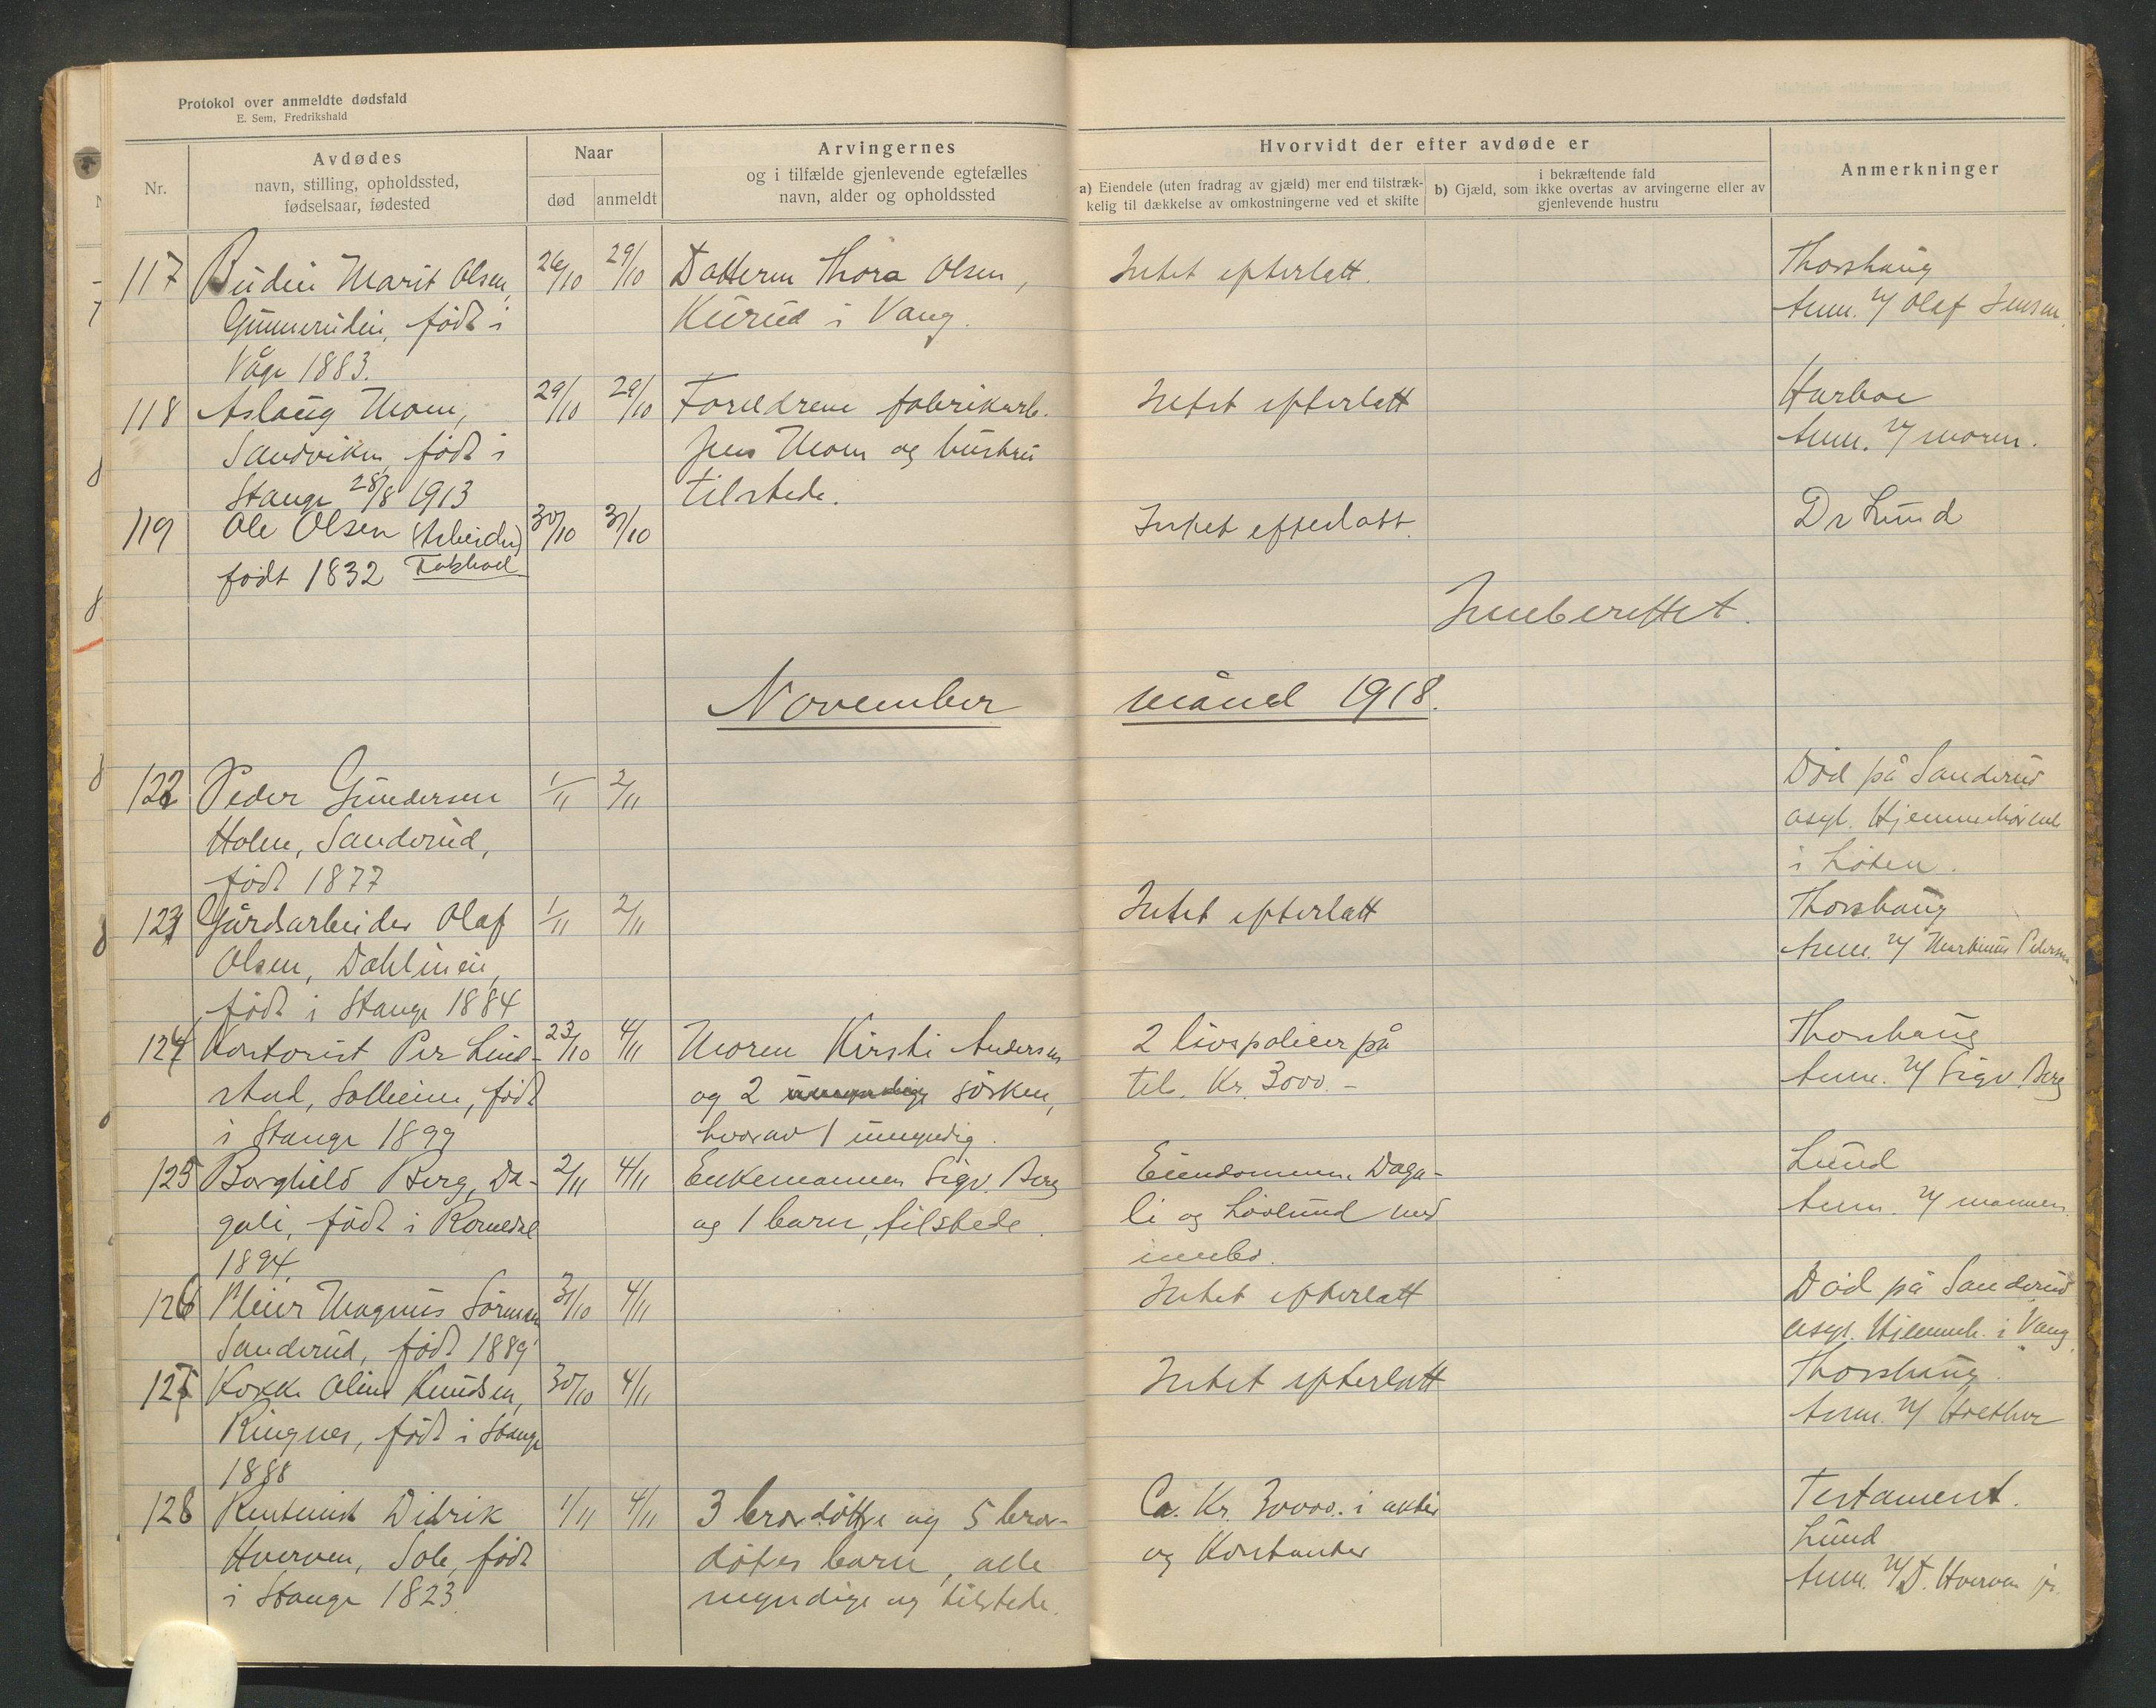 Protokol over anmeldte dødsfald
E. Sem, Fredrikshald
Nr.
Avdødes
navn, stilling, opholdssted,
fødselsaar, fødested
Naar
død
anmeldt
Arvingernes
og i tilfælde gjenlevende egtefælles
navn, alder og opholdssted
Hvorvidt der efter avdøde er
a) Eiendele (uten fradrag av gjæld) mer end tilstræk-
kelig til dækkelse av omkostningerne ved et skifte
i bekræftende fald
b) Gjæld, som ikke overtas av arvingerne eller av
gjenlevende hustru
Anmerkninger
117
Marit Olsen,
født i
Våge 1883.
26/10
29/10
Datteren Thora Olsen,
Kurud i Vang.
Intet efterlatt.
Thorshaug
Anm. v/ Olaf Jensen.
118
Aslaug Moen,
Sandviken, født i
Stange 28/8 1913
29/10
29/10
Foreldrene fabrikarb.
Jens Moen og hustru
tilstede.
Intet efterlatt
Harboe
Anm. v/ moren.
119
Ole Olsen (Arbeider)
født 1832
30/10
31/10
Intet efterlatt.
Dr Lund
Innberettet.
November
måned 1918.
122
Peder Gundersen
Holen, Sanderud,
født 1877
1/11
2/11
Død på Sanderud
asyl. Hjemmehørende
i Löten.
123
Gårdsarbeider Olaf
Olsen,
født i Stange 1884
1/11
2/11
Intet efterlatt
Thorshaug
Anm. v/ Martinus Pedersen
124
Kontorist Per Lind-
stad, Solheim, født
i Stange 1899
23/10
4/11
Moren Kirsti Andersen
og 2 umyndige søsken,
hvorav 1 umyndig.
2 livspolicer på
tils. Kr. 3000.-
Thorshaug
Anm. v/ Sigv. Berg
125
Borghild Berg, Da-
gali, født i Romedal
1894.
2/11
4/11
Enkemannen Sigv. Berg
og 1 barn, tilstede.
Eiendommene Daga-
li og Lövlund med
innbo.
Lund
Anm. v/ mannen.
126
Magnus
Sanderud, født 1889
31/10
4/11
Intet efterlatt
Död på Sanderud
asyl. Hjemmeh. i Vang.
127
Kokke Oline Knudsen,
Ringnes, født i Stange
1888
30/10
4/11
Intet efterlatt
Thorshaug.
Anm. v/
128
Rentenist Didrik
Hverven, Sole, født
i Stange 1823.
1/11
4/11
3 brordøttre og 5 bror-
døtres barn, alle
myndige og tilstede.
Ca. Kr. 30000.. i aktier
og Kontanter
Testament.
Lund
Anm. v/ D. Hverven jr.